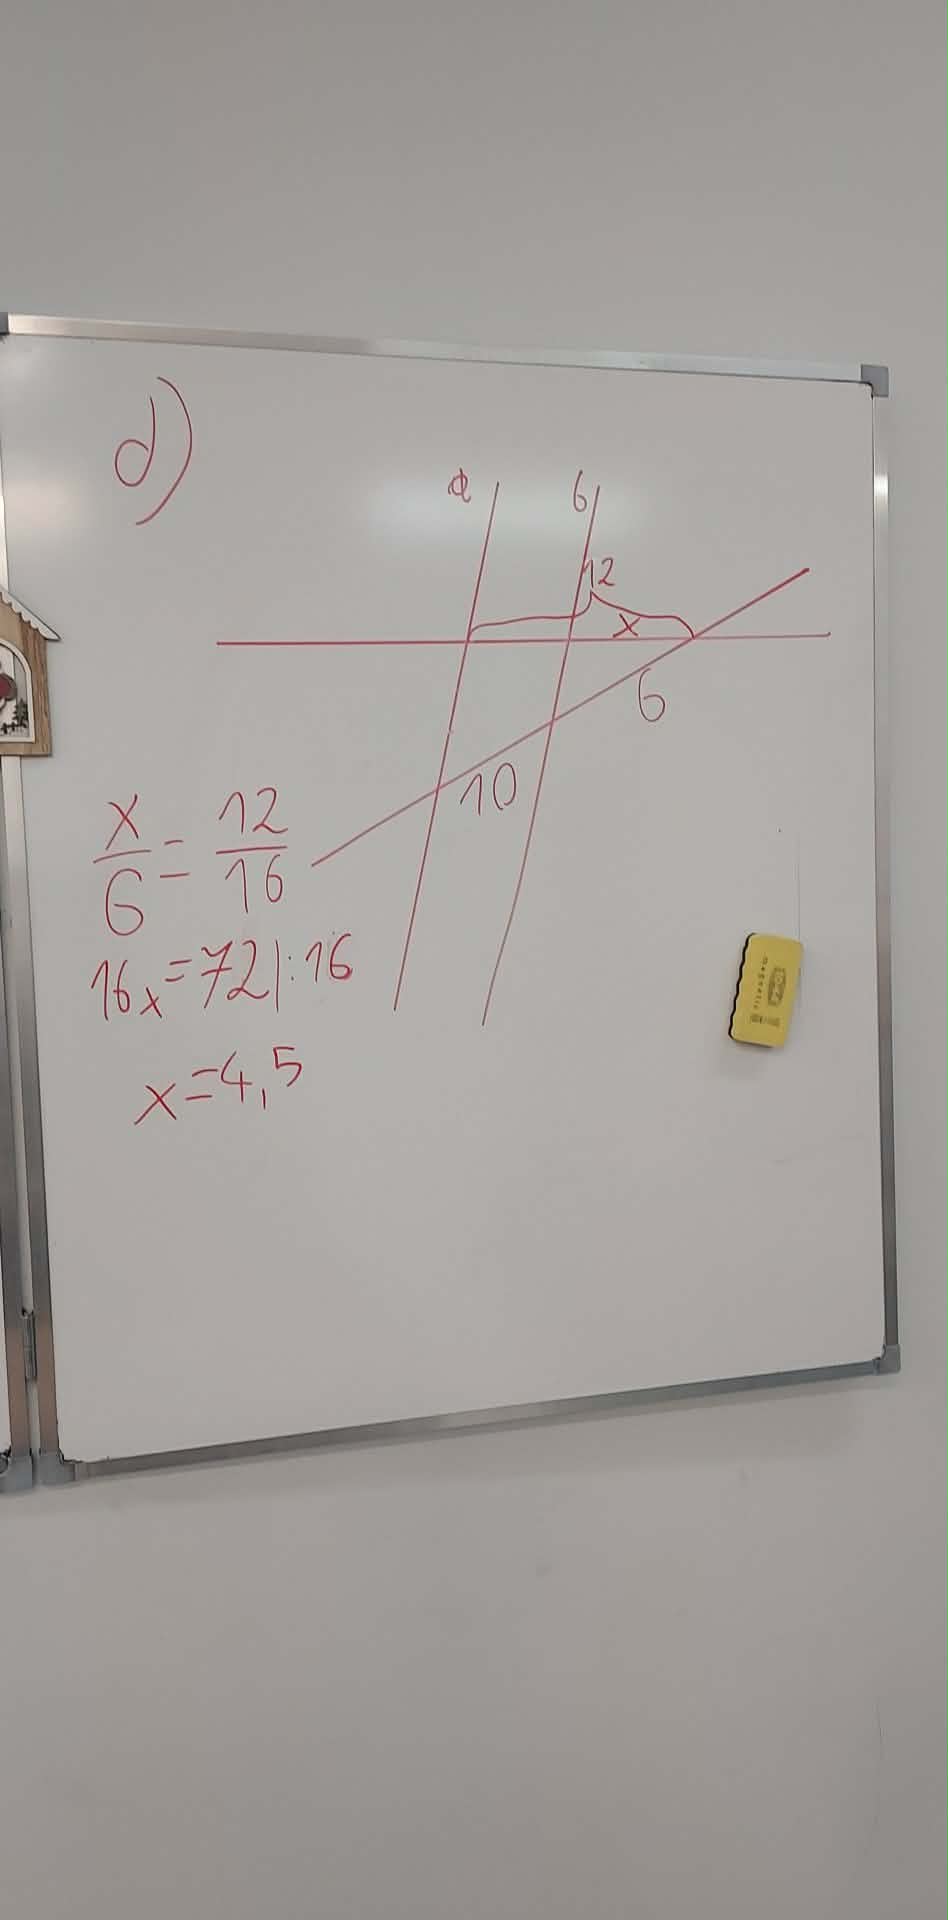 d)
a b
12
x
6
10
x/6 = 12/16
16x = 72 |:16
x = 4,5
magnetic